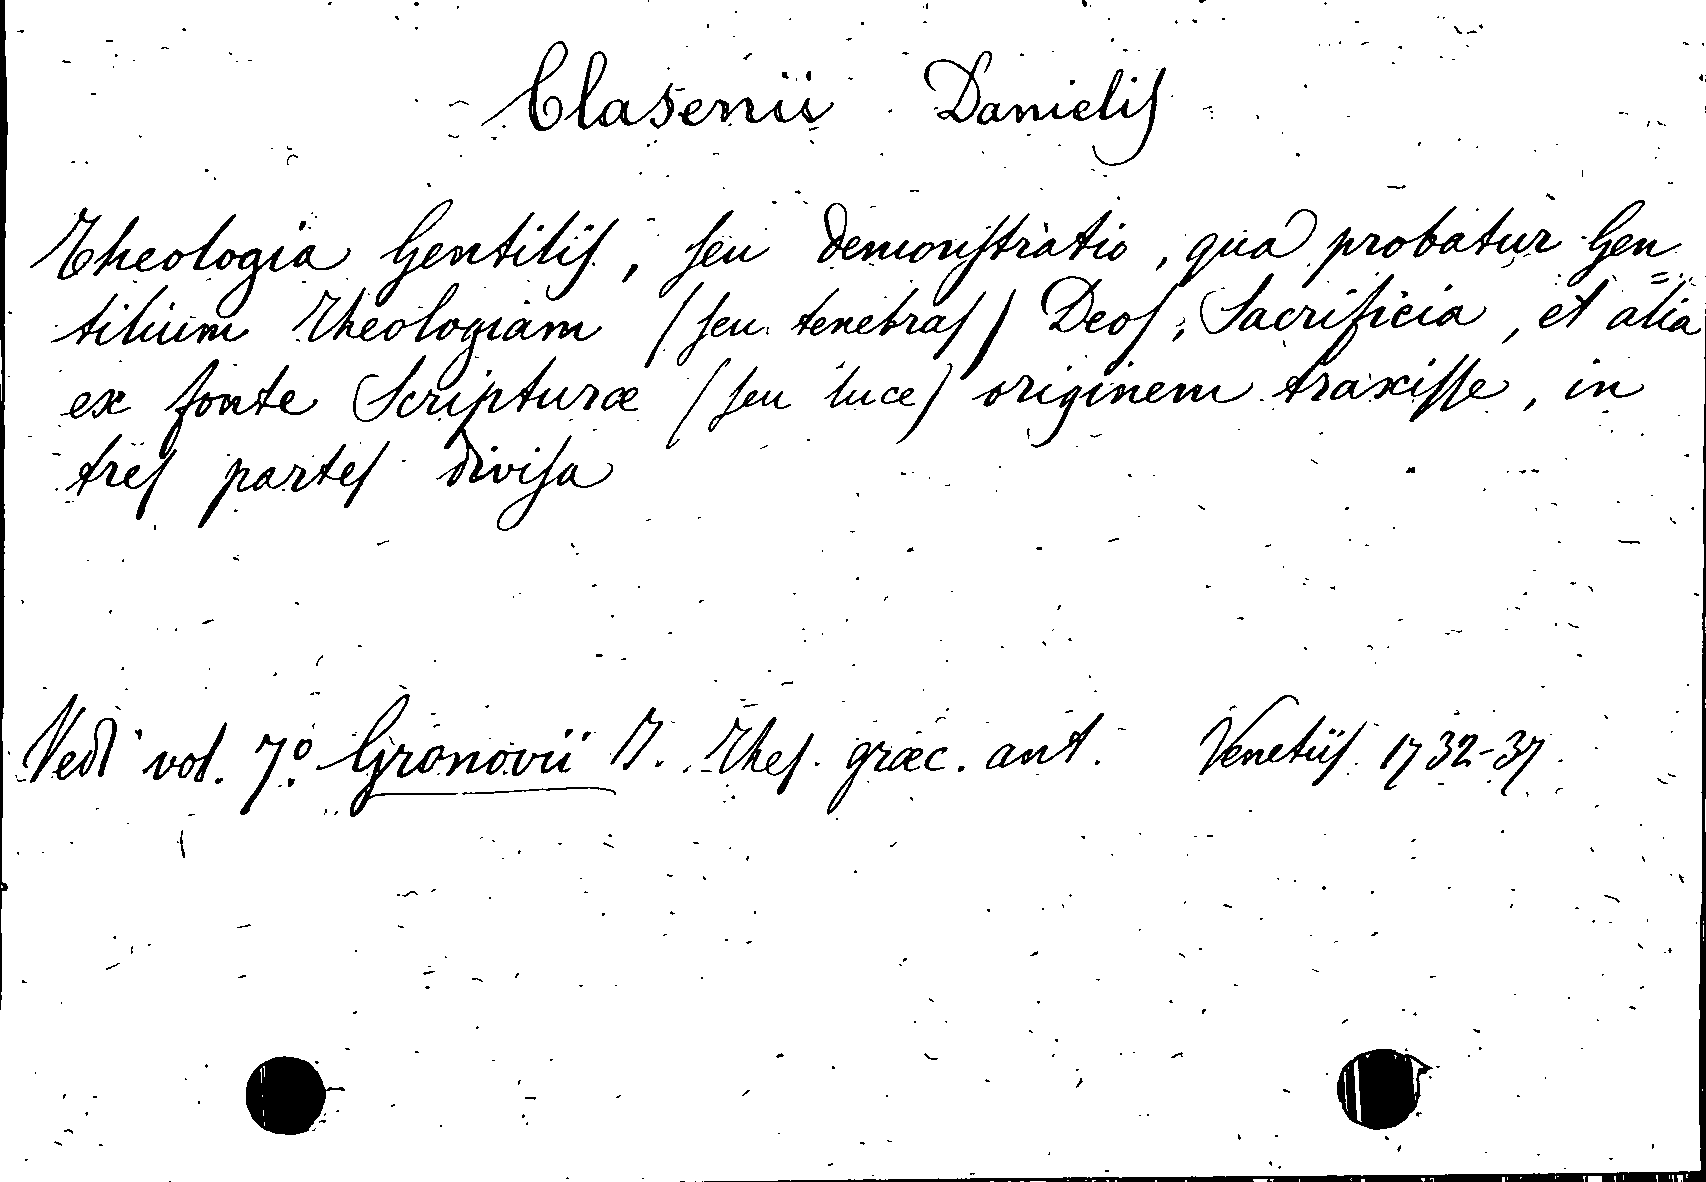 Clasenii Danielis
Theologia Gentilis, seu demonstratio, qua probatur Gen=
tilium Theologiam (seu tenebras) Deos, Sacrificia, et alia
ex fonte Scripturæ (seu luce) originem traxisse, in
tres partes divisa
Vedi vol. 7º Gronovii J. Thes. græc. ant. Venetiis 1732-37